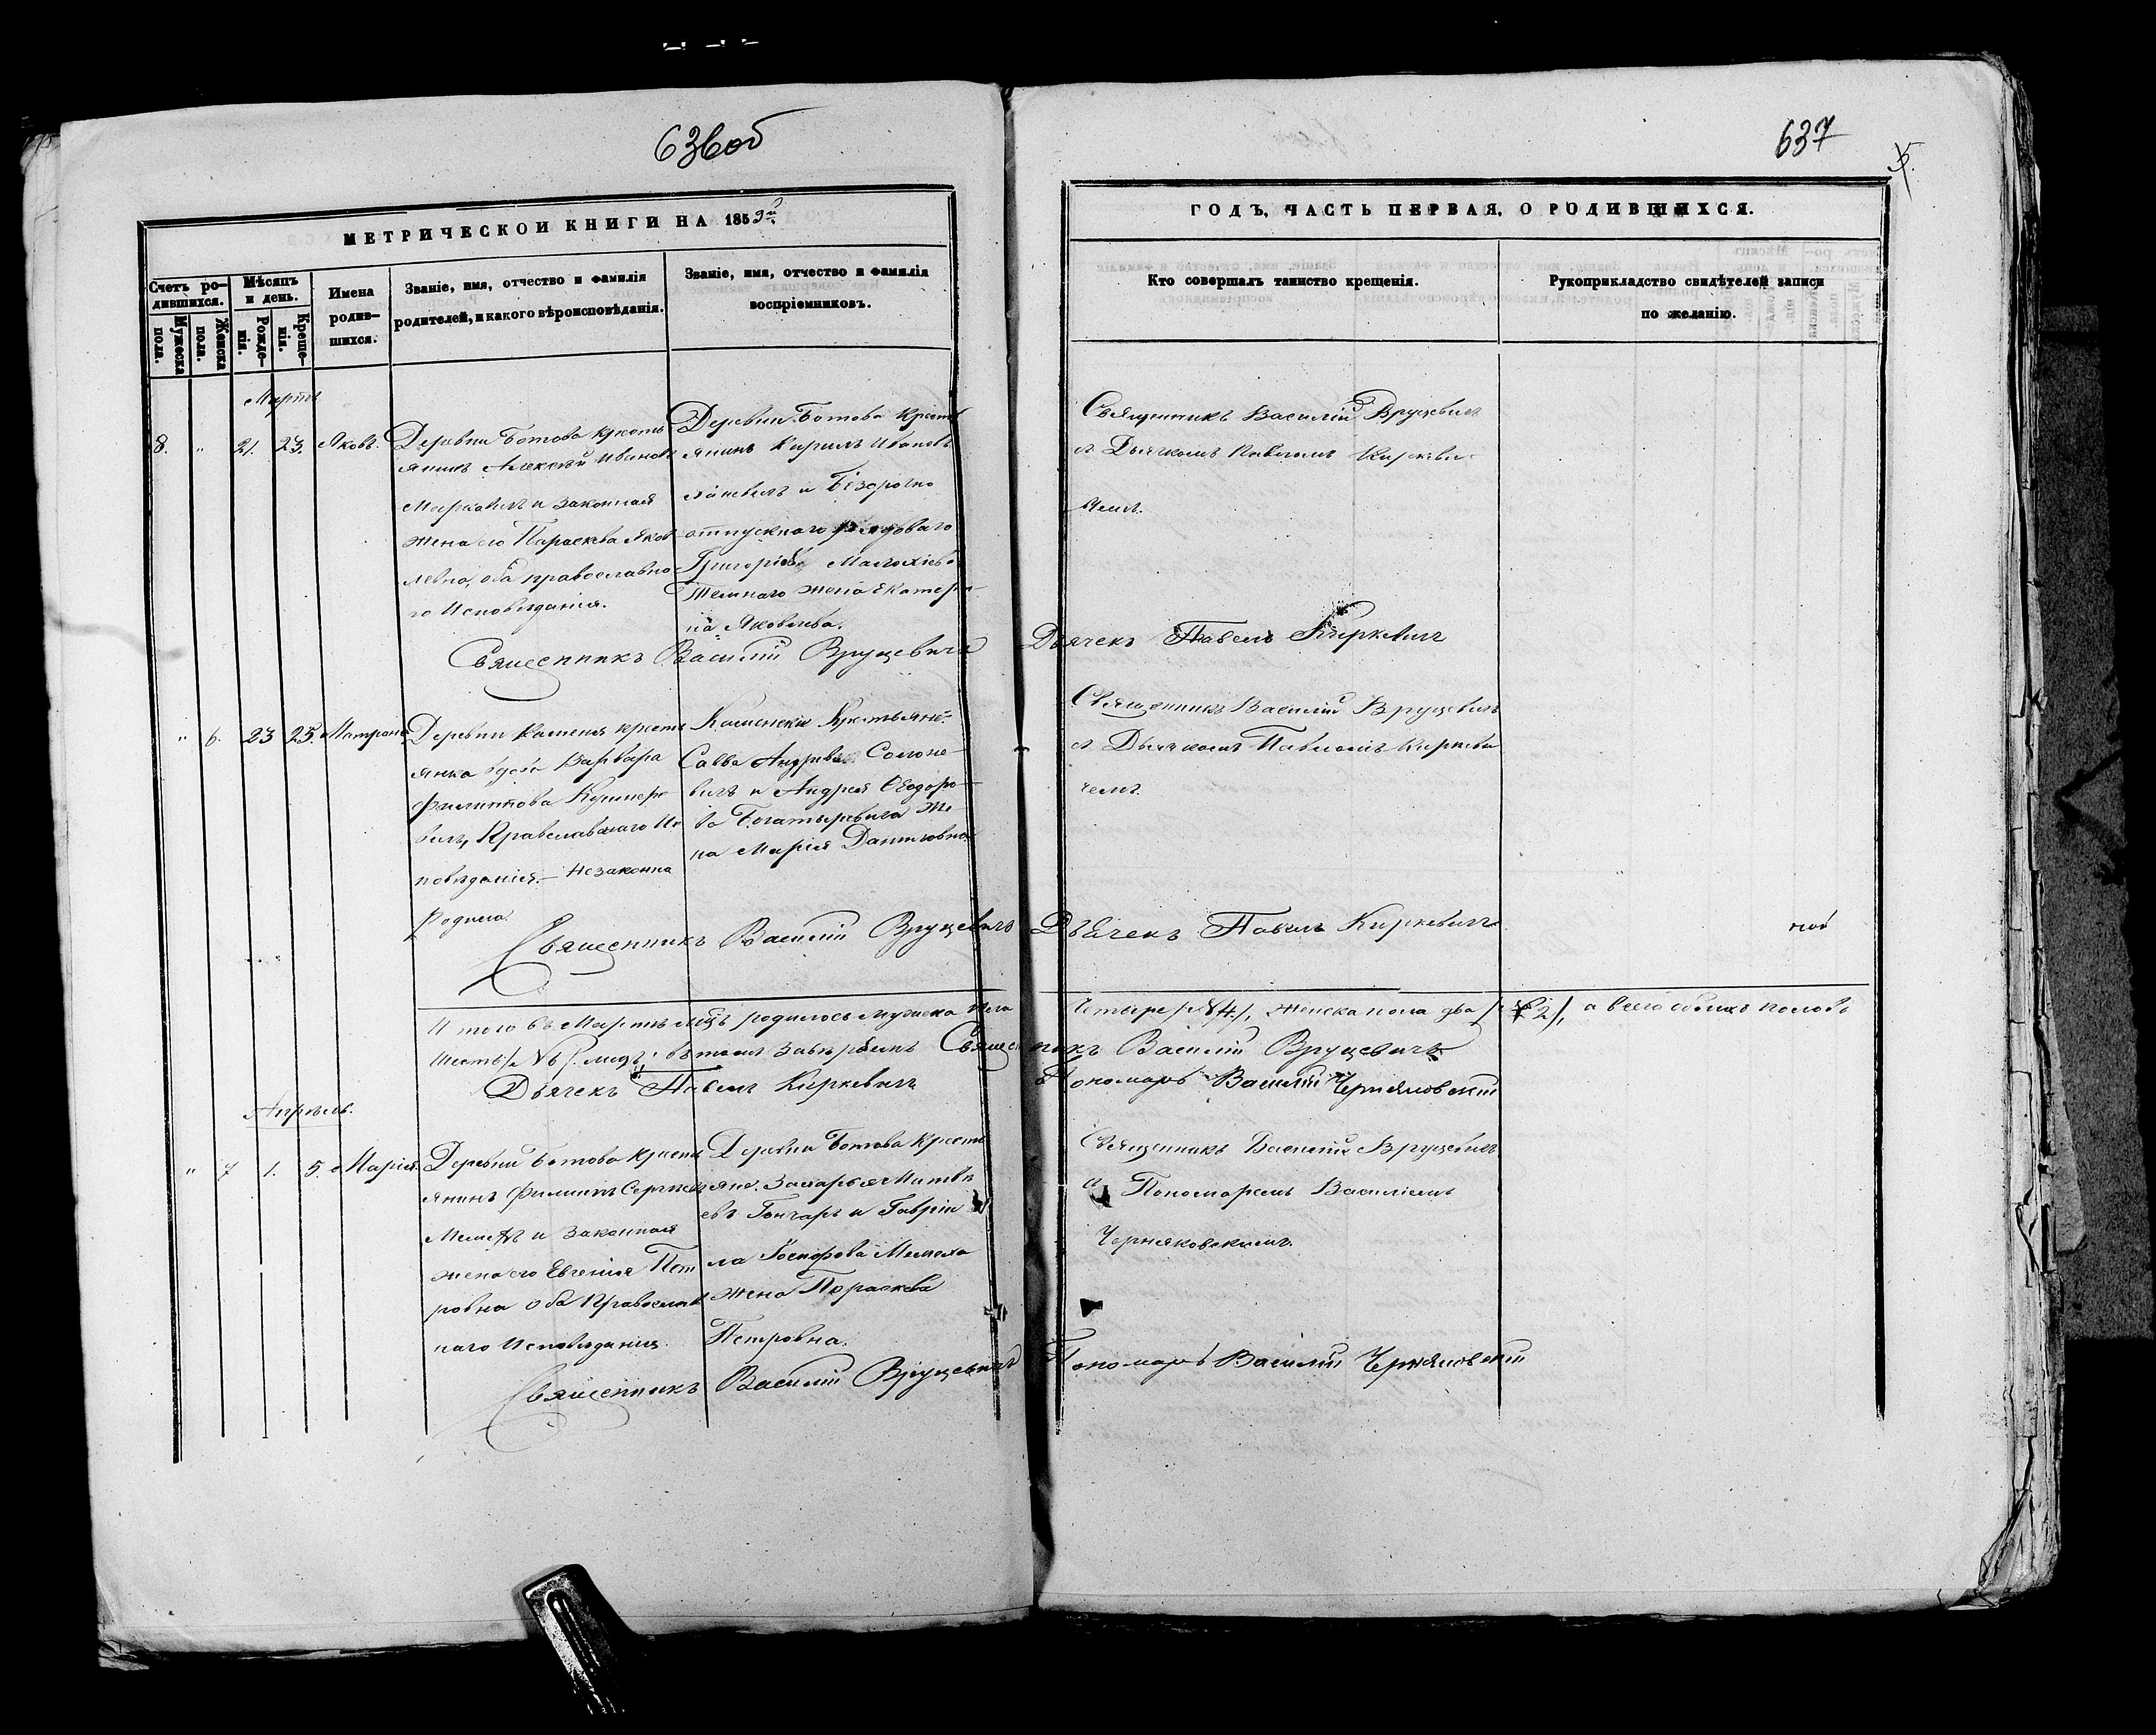 636об
637
5.
МЕТРИЧЕСКОЙ КНИГИ НА 1859й
ГОДЪ, ЧАСТЬ ПЕРВАЯ, О РОДИВШИХСЯ.
Счетъ ро-
дившихся.
Мужеска
пола.
Женска
пола.
Мѣсяцъ
и день.
Рожде-
нія.
Креще-
нія.
Имена
родив-
шихся.
Званіе, имя, отчество и фамилія
родителей, и какого вѣроисповѣданія.
Званіе, имя, отчество и фамилія
воспріемниковъ.
Кто совершалъ таинство крещенія.
Рукоприкладство свидѣтелей записи
по желанію.
Мартъ
8. " 21. 23. Яковъ.
Деревни Ботова кресть
янинъ Алексѣй Иванов
Марковичъ и законная
жена его Параскева Яков
левна, оба православна
го Исповѣданія.
Деревни Ботова Кресть
янинъ Кирилъ Иванов
и Безсрочно
отпускнаго рядоваго
Григорія
жена Екатери
на Яковлева.
Священникъ Василій Вруцевичъ
съ Дьячкомъ Павломъ Киркеви
чемъ.
Священникъ Василій Вруцевичъ
Дьячекъ Павелъ Киркевичъ
" 6. 23 25. Матрона
Деревни Каменя кресть
янка вдова Варвара
Филиппова Кушнере
вичъ, Православнаго Ис
повѣданія. – Незаконно
родила.
Каменскіи Крестьяне:
Савва Андреевъ Солоне
вичъ и Андрея Ѳеодоро
ва Богатыревича Же
на Марія Данииловна
Священникъ Василій Вруцевичъ
съ Дьячкомъ Павломъ Киркеви
чемъ.
Священникъ Василій Вруцевичъ
Дьячекъ Павелъ Киркевичъ
Итого въ Мартѣ мцѣ родилось мужеска пола
Четыре /№ 4/, женска пола два /№ 2/, а всего обоихъ половъ
Шесть /№ 6/. лицъ; въ томъ завѣряемъ Священникъ Василій Вруцевичъ
Дьячекъ Павелъ Киркевичъ
Пономарь Василій Черняковскій
Апрѣль.
" 7 1. 5. Марія.
Деревни Ботова кресть
янинъ Филиппъ Сергѣев
и Законная
жена его Евгенія Пет
ровна оба Православ
наго Исповѣданія.
Деревни Ботова Кресть
яне: Захарья Матвѣ
евъ Гончаръ и Гаврии
ла
жена Параскева
Петровна.
Священникъ Василій Вруцевичъ
съ Пономаремъ Василіемъ
Черняковскимъ.
Священникъ Василій Вруцевичъ
Пономарь Василій Черняковскій